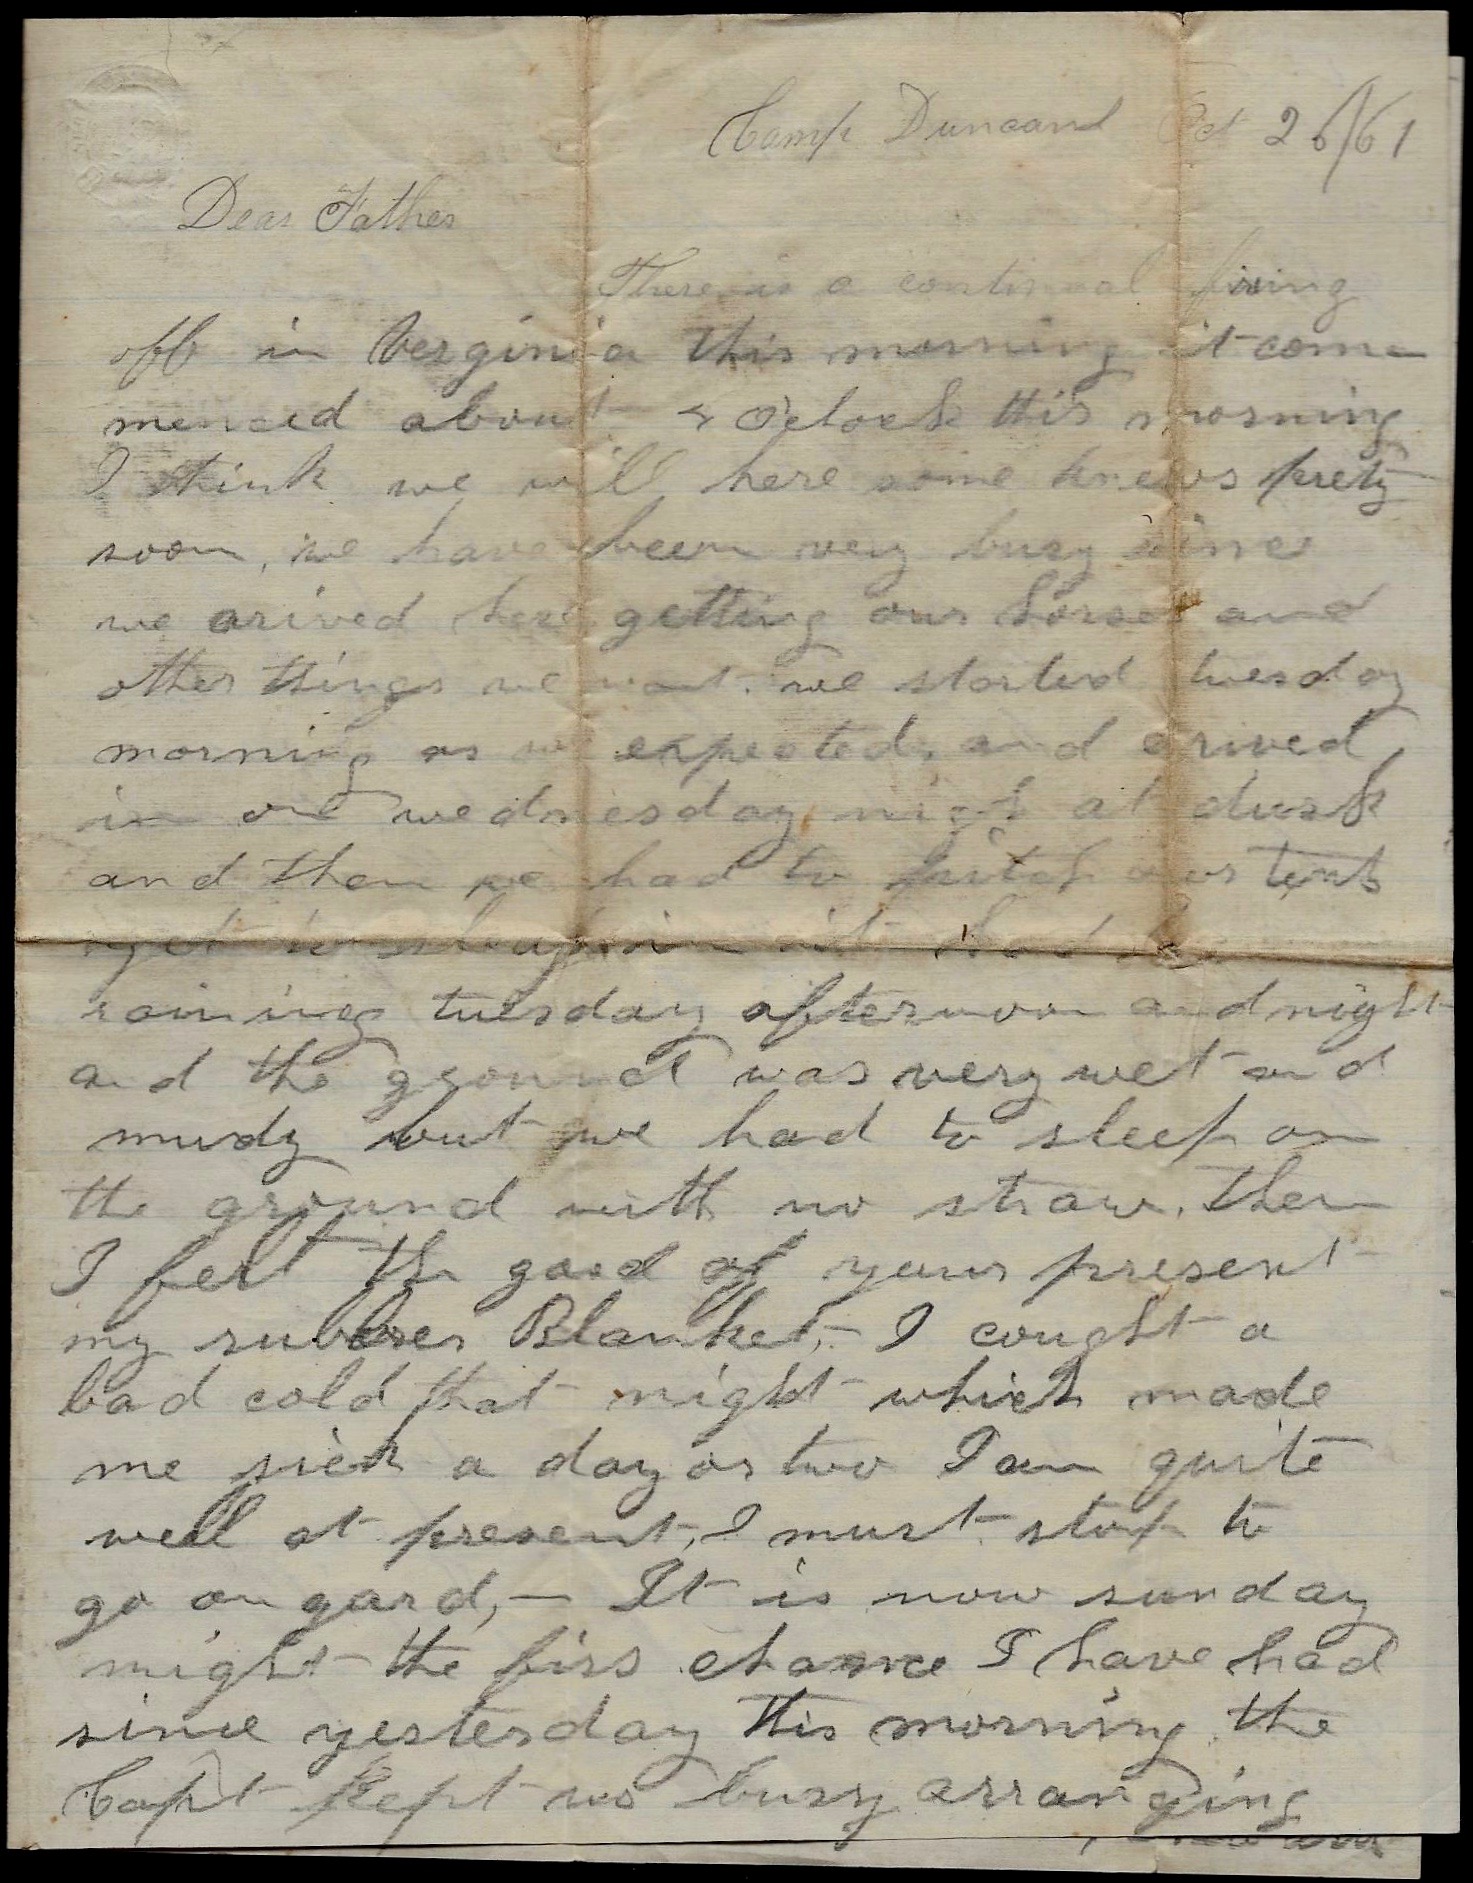 Camp Duncand Oct 26/61
Dear Father
There is a continual firing
off in Verginia this morning it com
menced about O'clock this morning
I think we will here some knews prety
soon, we have been very busy since
we arived here getting our horses and
other things we want. we started tuesday
morning as we expected, and arived
in on wednesday nigh at dusk
and then we had to pitch our tents
to sleap in it had
raining tuesday afternoon and night
and the ground was very wet and
mudy but we had to sleep on
the ground with no straw. then
I felt the good of your present
my rubber Blanket,- I cought a
bad cold that night which made
me sick a day or two I am quite
well at present, I must stop to
go on gard,- It is now sunday
night the firs chance I have had
since yesterday this morning the
Capt kept us busy arranging